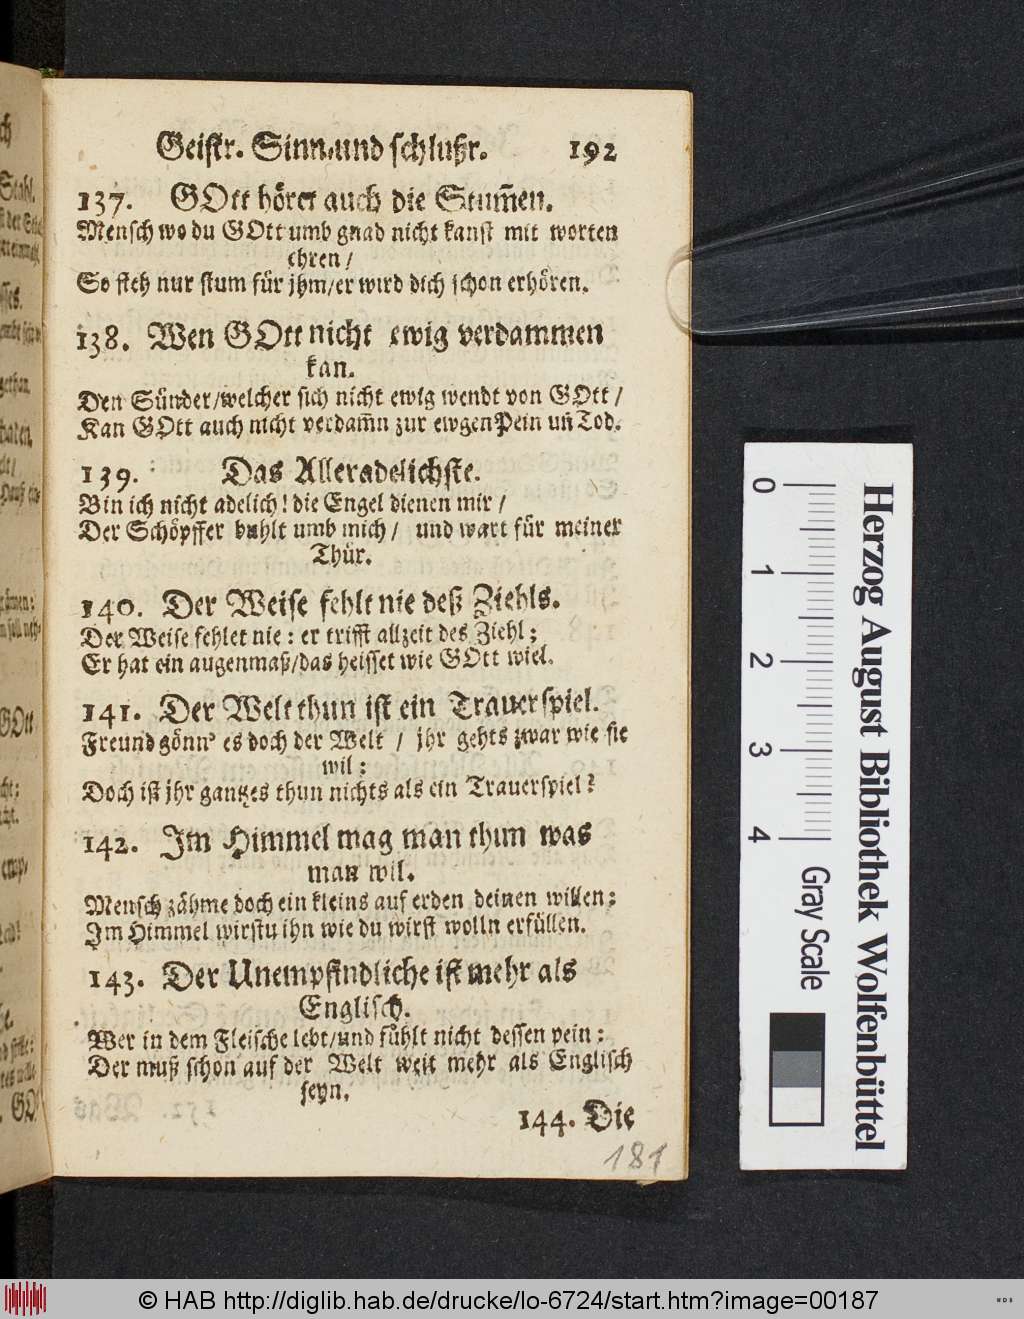 Geistr. Sinn-und schlußr. 192
137. GOtt höret auch die Stum̃en.
Mensch wo du GOtt umb gnad nicht kanst mit worten
ehren /
So steh nur stum für jhm/er wird dich schon erhören.
138. Wen GOtt nicht ewig verdammen
kan.
Den Sünder/welcher sich nicht ewig wendt von GOtt /
Kan GOtt auch nicht verdam̃n zur ewgen Pein uñ Tod.
139. Das Alleradelichste.
Bin ich nicht adelich! die Engel dienen mir /
Der Schöpffer buhlt umb mich / und wart für meiner
Thür.
140. Der Weise fehlt nie deß Ziehls.
Der Weise fehlet nie : er trifft allzeit des Ziehl ;
Er hat ein augenmaß/das heisset wie GOtt wiel.
141. Der Welt thun ist ein Trauerspiel.
Freund gönn' es doch der Welt / jhr gehts zwar wie sie
wil :
Doch ist jhr gantzes thun nichts als ein Trauerspiel ?
142. Im Himmel mag man thun was
man wil.
Mensch zähme doch ein kleins auf erden deinen willen ;
Im Himmel wirstu ihn wie du wirst wolln erfüllen.
143. Der Unempfindliche ist mehr als
Englisch.
Wer in dem Fleische lebt/und fühlt nicht dessen pein :
Der muß schon auf der Welt weit mehr als Englisch
seyn.
144. Die
181
0 1 2 3 4
Gray Scale
Herzog August Bibliothek Wolfenbüttel
© HAB http://diglib.hab.de/drucke/lo-6724/start.htm?image=00187